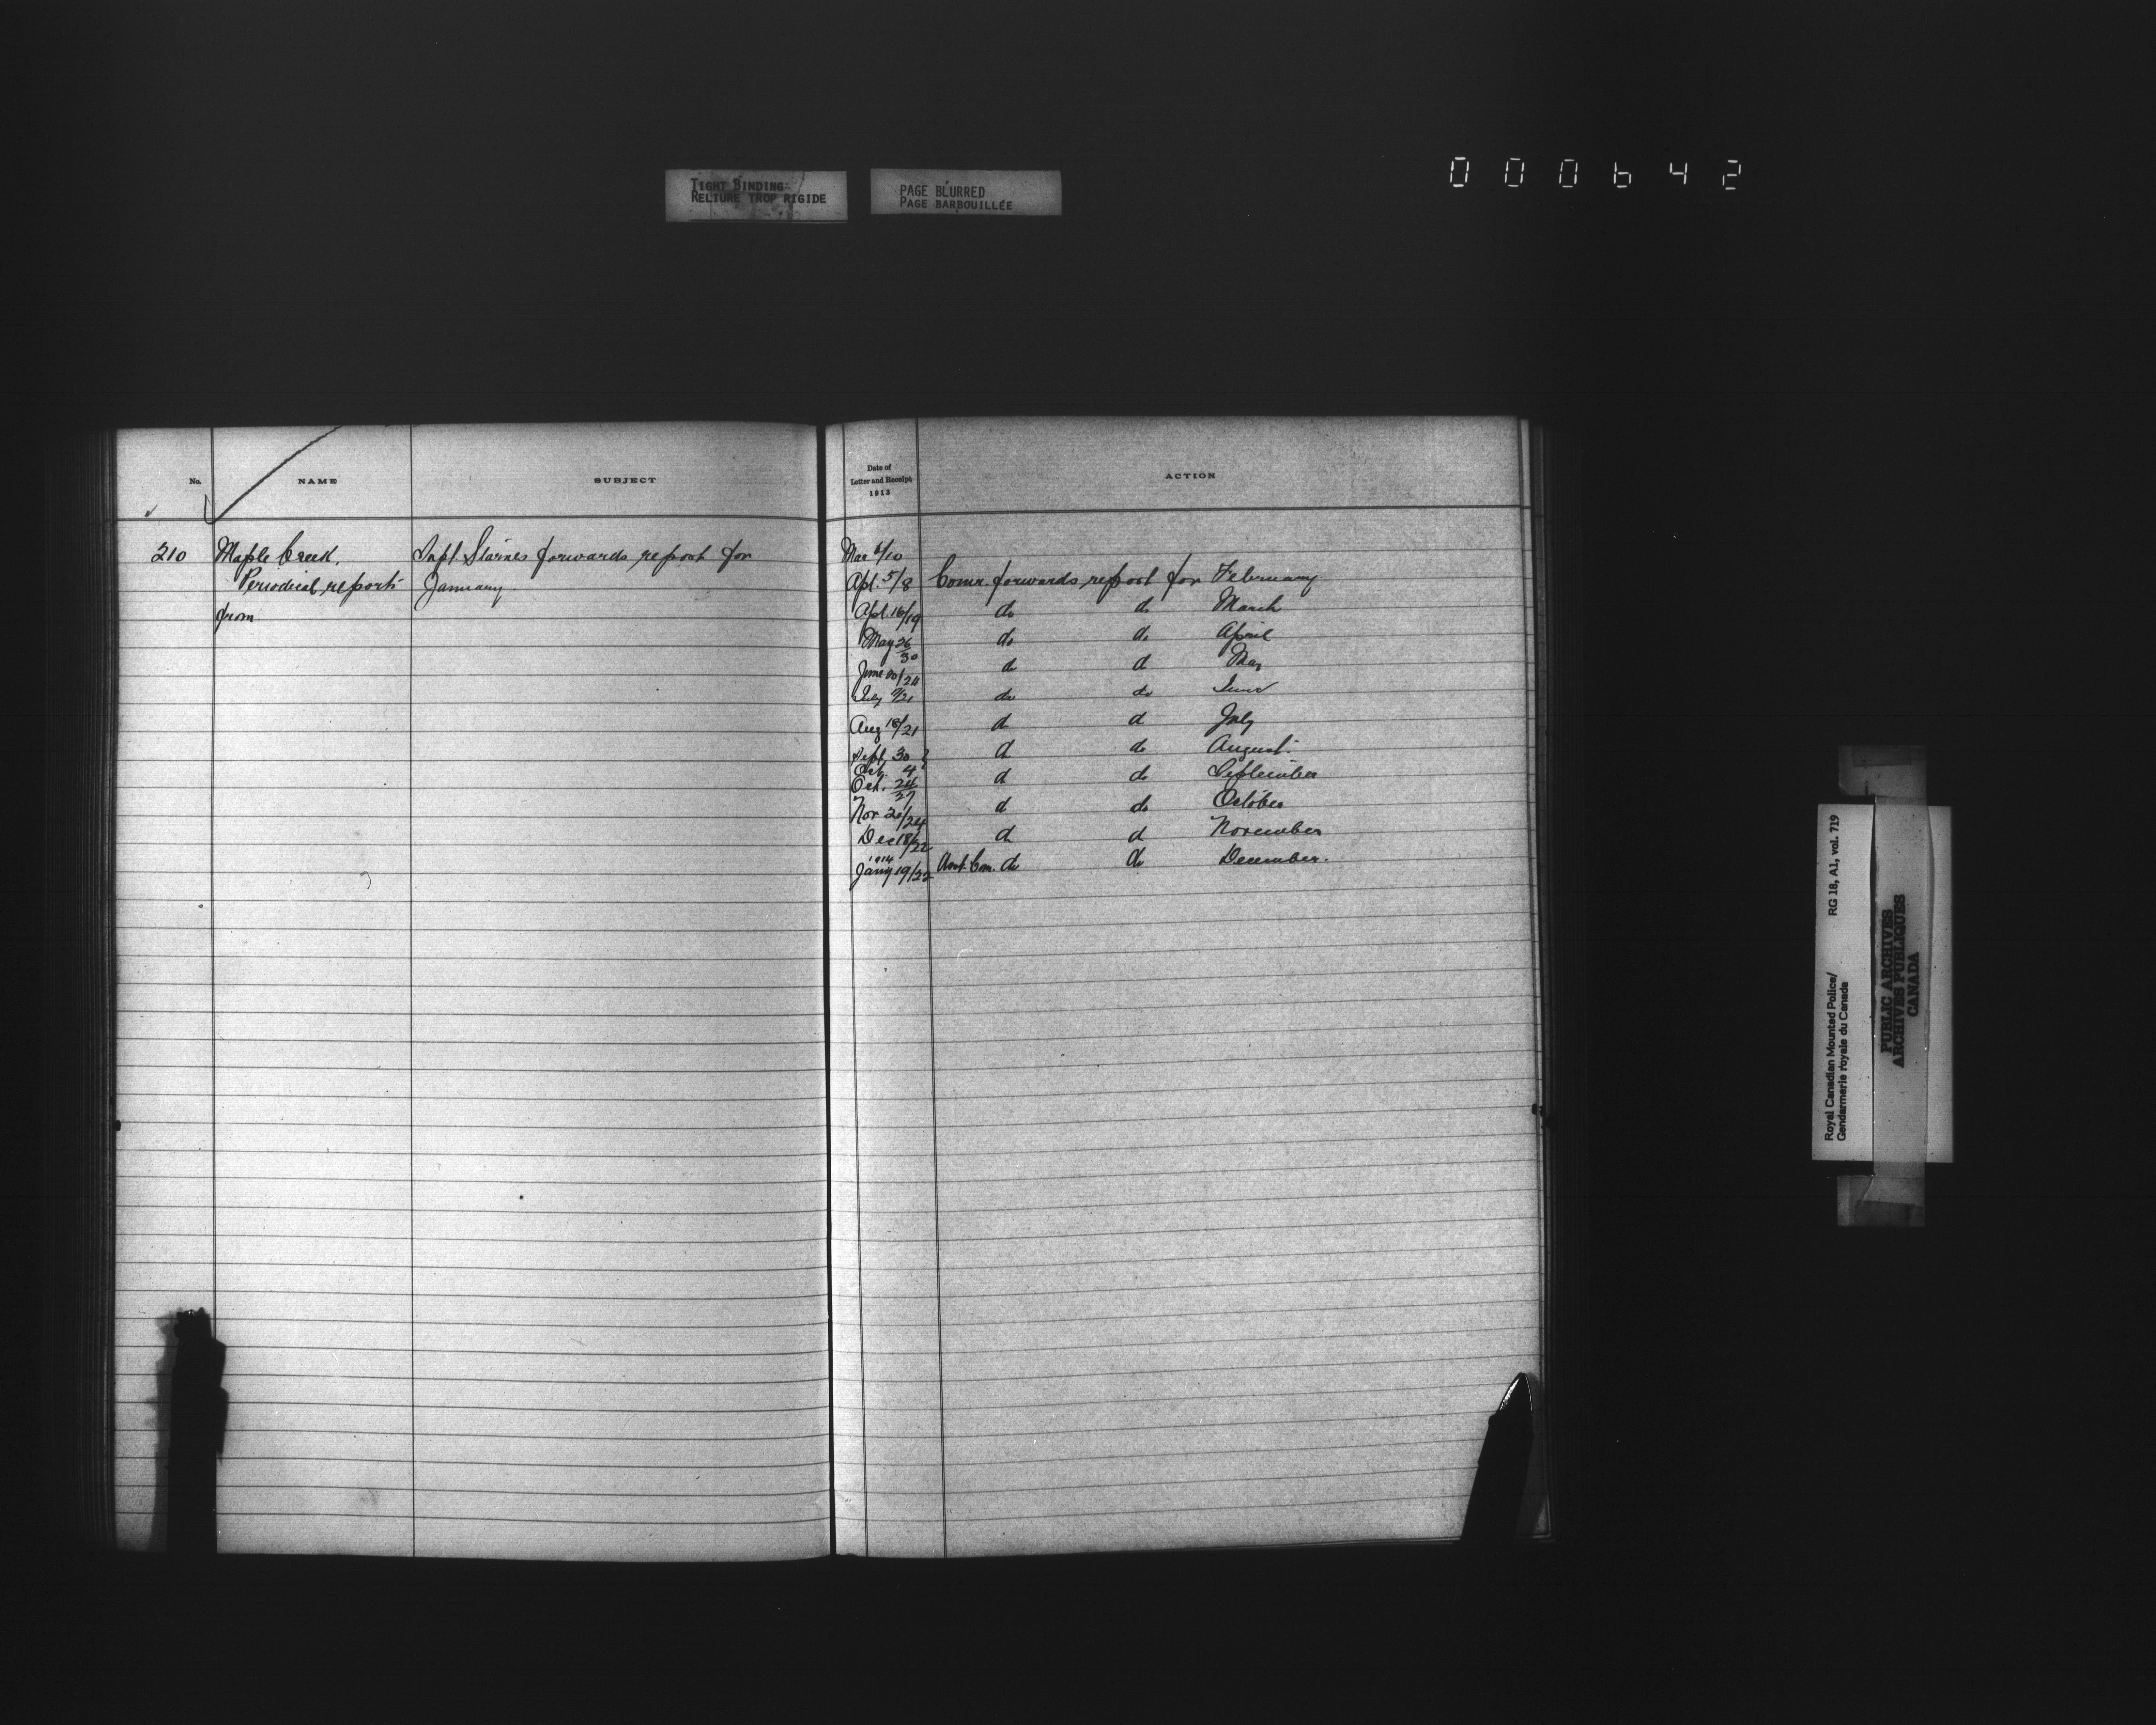 TIGHT BINDING
RELIURE TROP RIGIDE
PAGE BLURRED
PAGE BARBOUILLÉE
000642
No.
NAME
SUBJECT
Date of
Letter and Receipt
1913
ACTION
210 Maple Creek. Supt Starnes forwards report for Mar 6/10
Periodical reports January. Apl. 5/8 Comr. forwards report for February
from Apl. 16/19 do do March
May 26/30 do do April
June 20/24 do d May
July 9/21 do do June
Aug 18/21 d d July
Sept. 30 } d do August.
Oct. 4
Oct. 24/27 d do September
Nor 20/24 d do October
Dec 18/22 d d November
1914
Jany 19/22 Asst. Com. do do December.
Royal Canadian Mounted Police/ RG 18, A1, vol. 719
Gendarmerie royale du Canada
PUBLIC ARCHIVES
ARCHIVES PUBLIQUES
CANADA